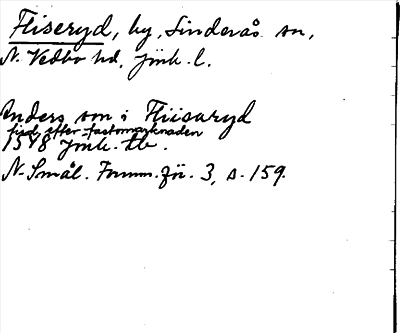 Fliseryd, by, Linderås sn,
N. Vedbo hd, Jönk. l.
Anders son i Fliisaryd
fred. efter fastomarknaden
1548 Jönk. tb.
N. Smål. Fornm. för. 3, s. 159.